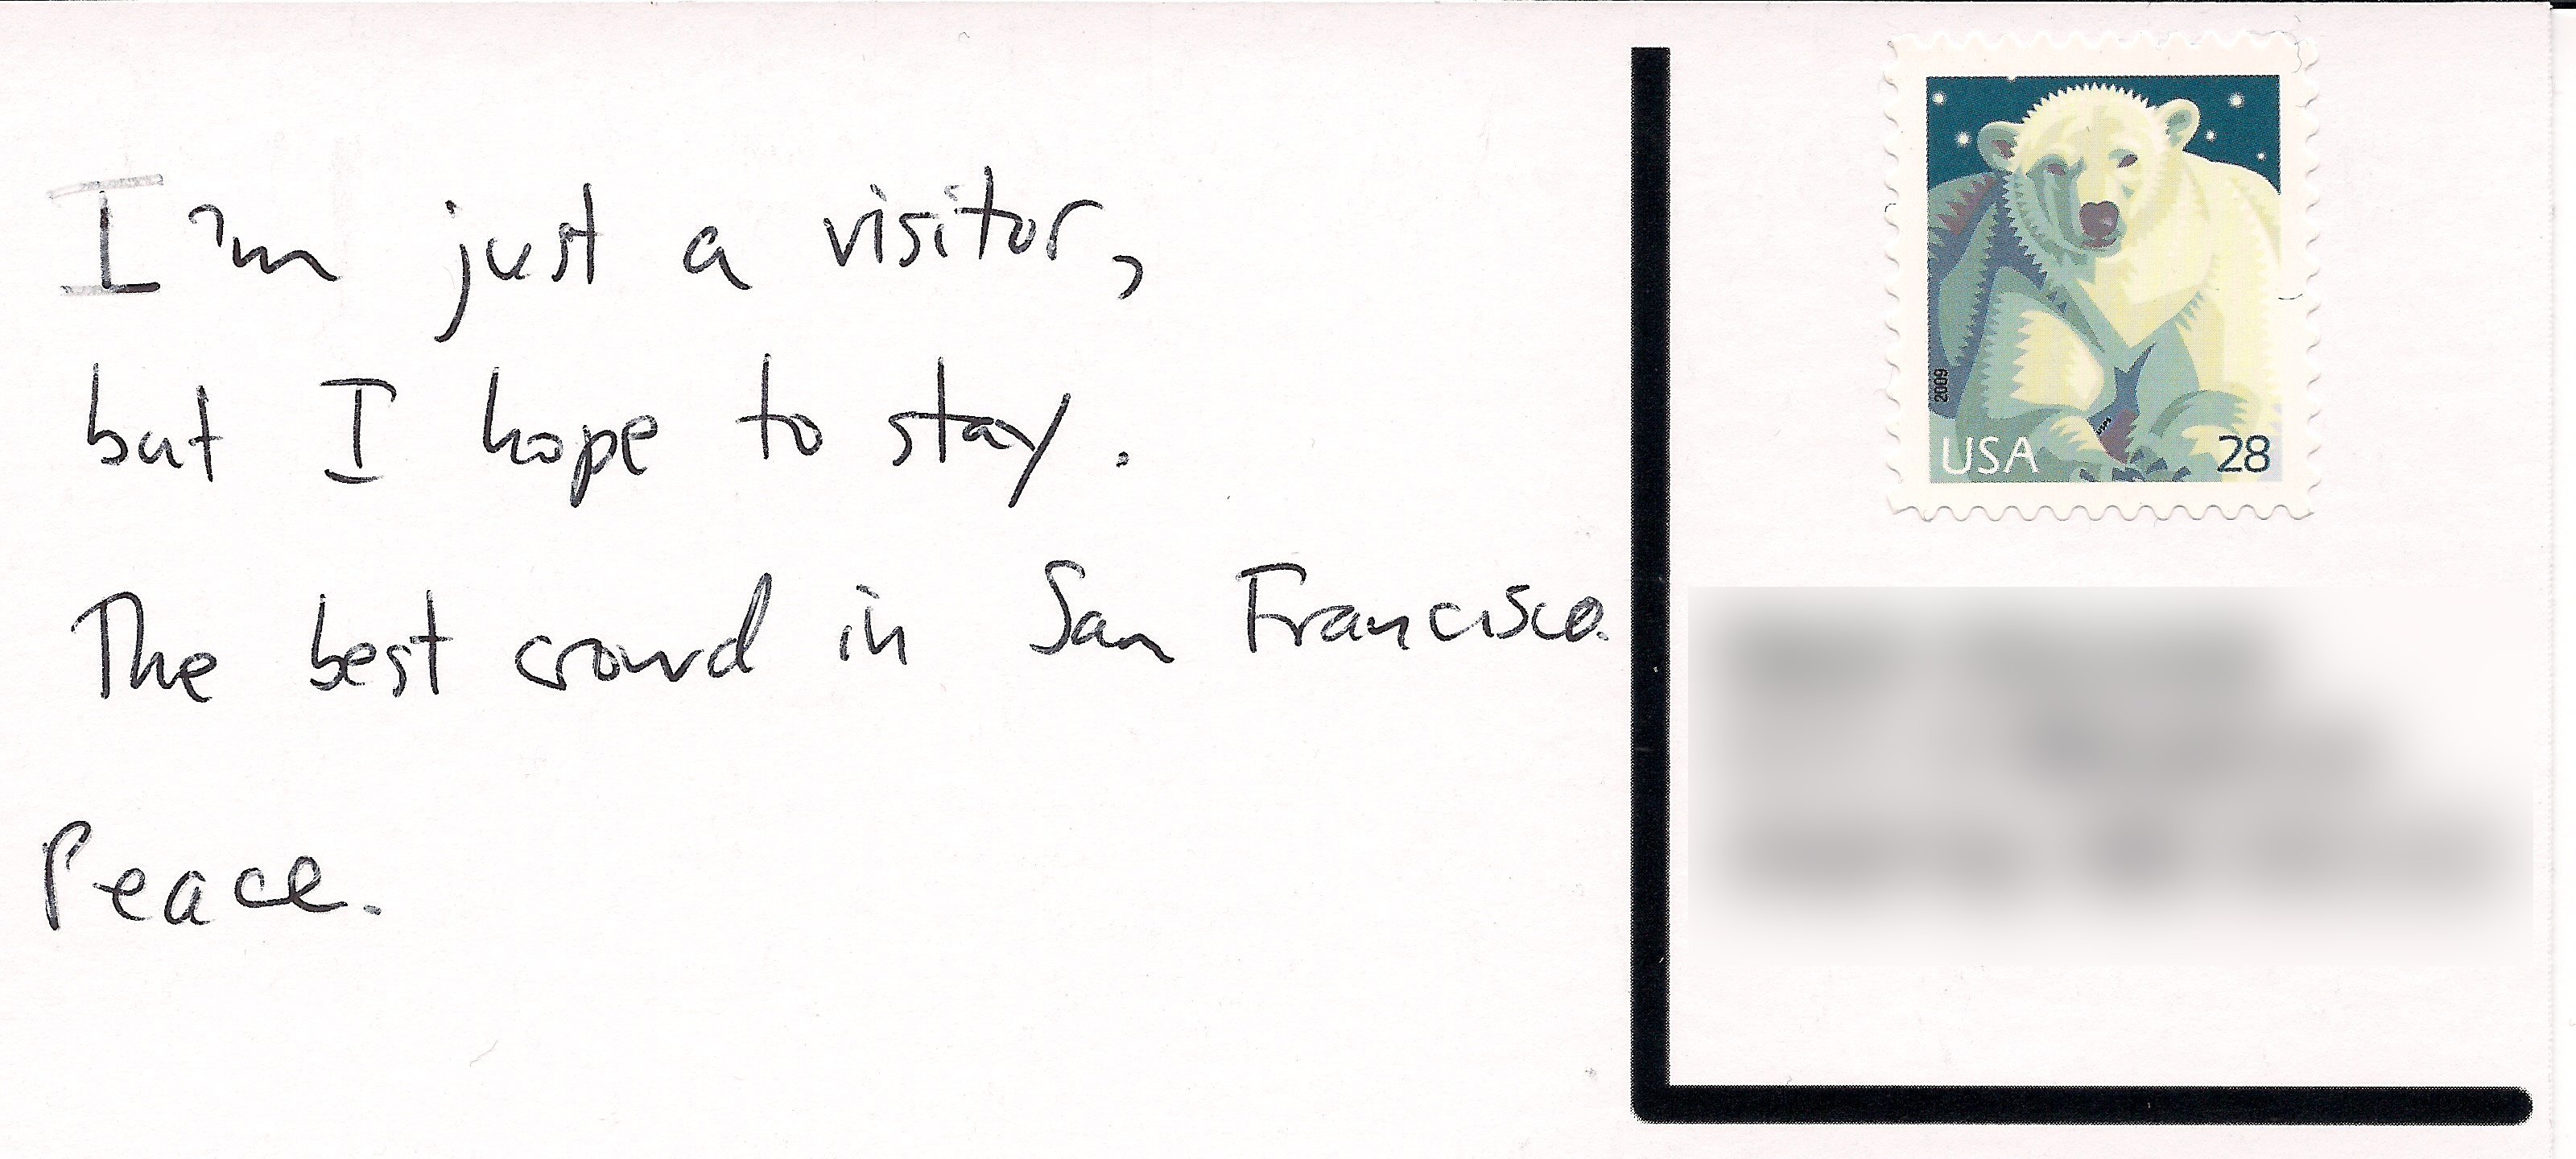 I'm just a visitor,
but I hope to stay.
The best crowd in San Francisco.
Peace.
2009
USA 28